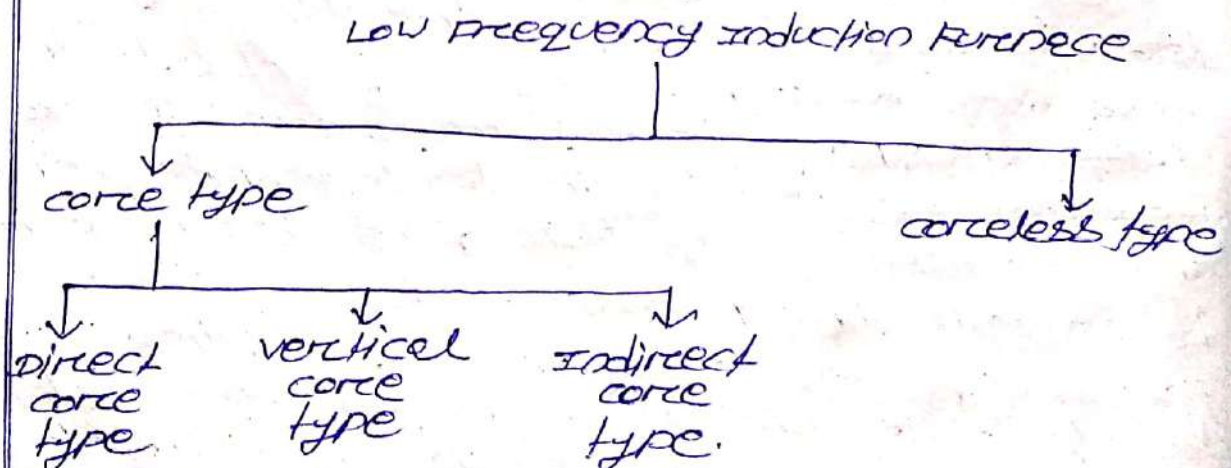 Low Frequency Induction Furnace
core type
coreless type
Direct core type.
vertical core type
Indirect core type.